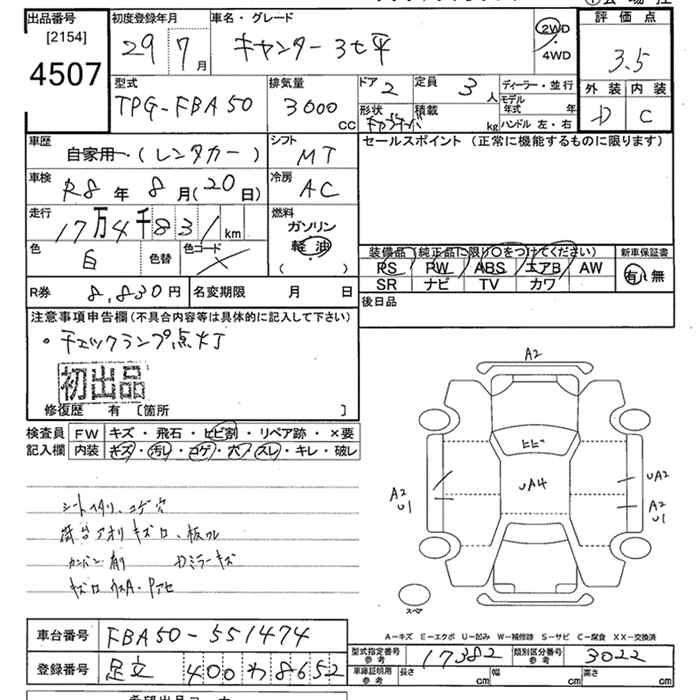 出品番号
[2154]
4507
初度登録年月
29 7月
車名・グレード
キャンター 3t平
2WD
4WD
評価点
3.5
外装 内装
D C
型式
TPG-FBA50
排気量
3000
CC
ドア 2
定員 3人
形状
積載
kg
ディーラー・並行
モデル年式 年
ハンドル 左・右
車歴
自家用 (レンタカー)
シフト
MT
セールスポイント (正常に機能するものに限ります)
車検
R8年 8月 (20日)
冷房
AC
走行
17万4千831km
燃料
ガソリン
軽油
( )
色
白
色替
色コード
装備品 (純正品に限り〇をつけてください)
PS PW ABS エアB AW
SR ナビ TV カワ
新車保証書
有・無
R券 8,830円
名変期限 月 日
後日品
注意事項申告欄 (不具合内容等は具体的に記入して下さい)
・チェックランプ点灯
初出品
修復歴 有 〔箇所 〕
検査員
記入欄
FW キズ・飛石・ヒビ割・リペア跡・×要
内装 キズ・汚レ・コゲ・穴・スレ・キレ・破レ
シートヘタリ、コゲ穴
荷台アオリキズロ、板ワレ
カンバン削 ドミラーキズ
A2
ヒビ
UA4
A2
U1
UA2
A2
U1
スペア
A-キズ E-エクボ U-凹み W-補修跡 S-サビ C-腐食 XX-交換済
車台番号 FBA50-551474
登録番号 足立 400 わ 8652
型式指定番号
参考
17382
類別区分番号
参考
3022
車庫証明用
参考
長さ cm
幅 cm
高さ cm